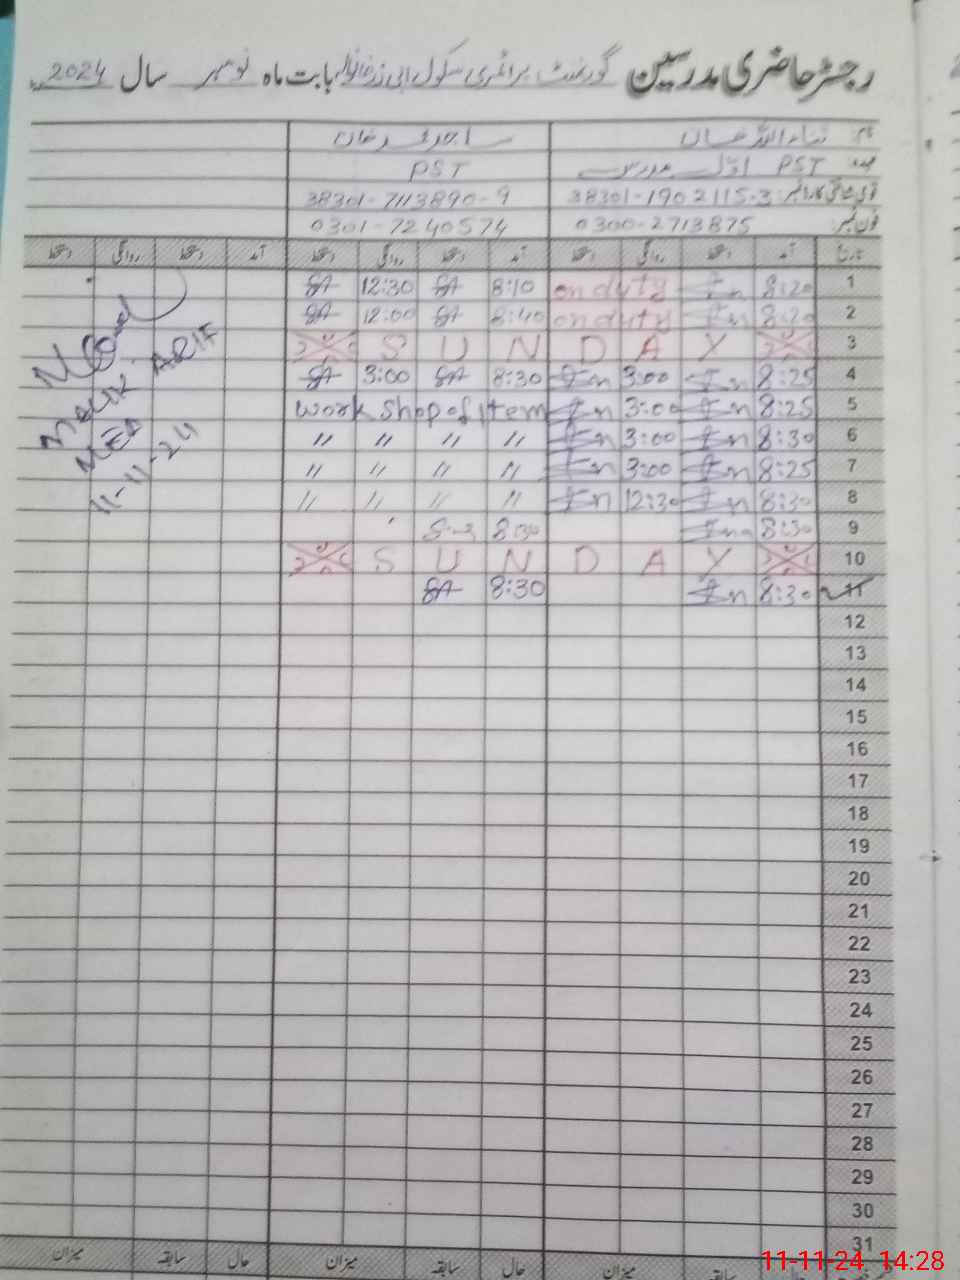 رجسٹر حاضری مدرسین گورنمنٹ پرائمری سکول بابت ماہ نومبر سال 2024
نام: ثناء اللہ خان ساجد خان
عہدہ PST اوّل مدرس PST
قومی شناختی کارڈ نمبر: 38301-1902115-3 38301-7113890-9
فون نمبر: 0300-2713875 0301-7240574
تاریخ آمد دستخط روانگی دستخط آمد دستخط روانگی دستخط آمد دستخط روانگی دستخط
1 8:20 on duty 8:10 SA 12:30 SA
2 8:20 on duty 8:40 SA 12:00 SA
3 S U N D A Y
4 8:25 3:00 8:30 SA 3:00 SA
5 8:25 3:00 Work Shop of Item
6 8:30 3:00 〃 〃 〃 〃
7 8:25 3:00 〃 〃 〃 〃
8 8:30 12:30 〃 〃 〃 〃
9 8:30 8:30
10 S U N D A Y
11 8:30 8:30 SA
MALIK ARIF
MEA
11-11-24
12
13
14
15
16
17
18
19
20
21
22
23
24
25
26
27
28
29
30
31
میزان سابقہ حال میزان سابقہ حال میزان سابقہ حال
11-11-24 14:28